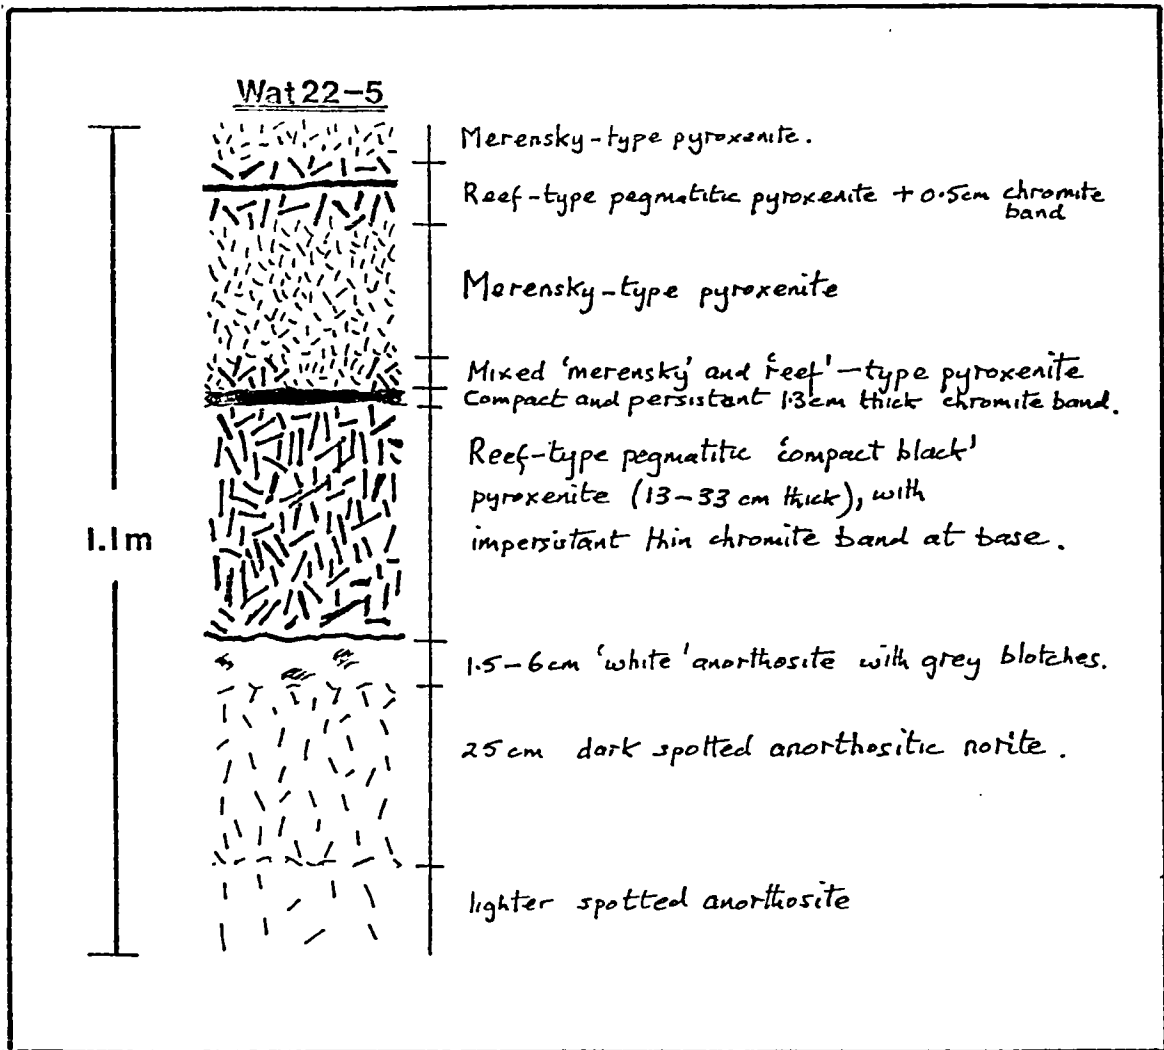 Wat 22-5
Merensky-type pyroxenite.
Reef-type pegmatitic pyroxenite + 0.5cm chromite
band
Merensky-type pyroxenite
Mixed 'merensky' and 'reef'-type pyroxenite
Compact and persistant 1.3cm thick chromite band.
Reef-type pegmatitic 'compact black'
pyroxenite (13-33 cm thick), with
impersistant thin chromite band at base.
1.1m
1.5-6cm 'white' anorthosite with grey blotches.
25 cm dark spotted anorthositic norite.
lighter spotted anorthosite